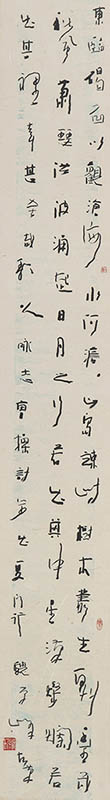 東臨碣石以觀滄海水何澹〻山島竦峙樹木叢生百草豐茂
秋風蕭瑟洪波湧起日月之行若出其中星漢燦爛若
出其裡幸甚至哉歌以詠志曹操詩步出夏門行